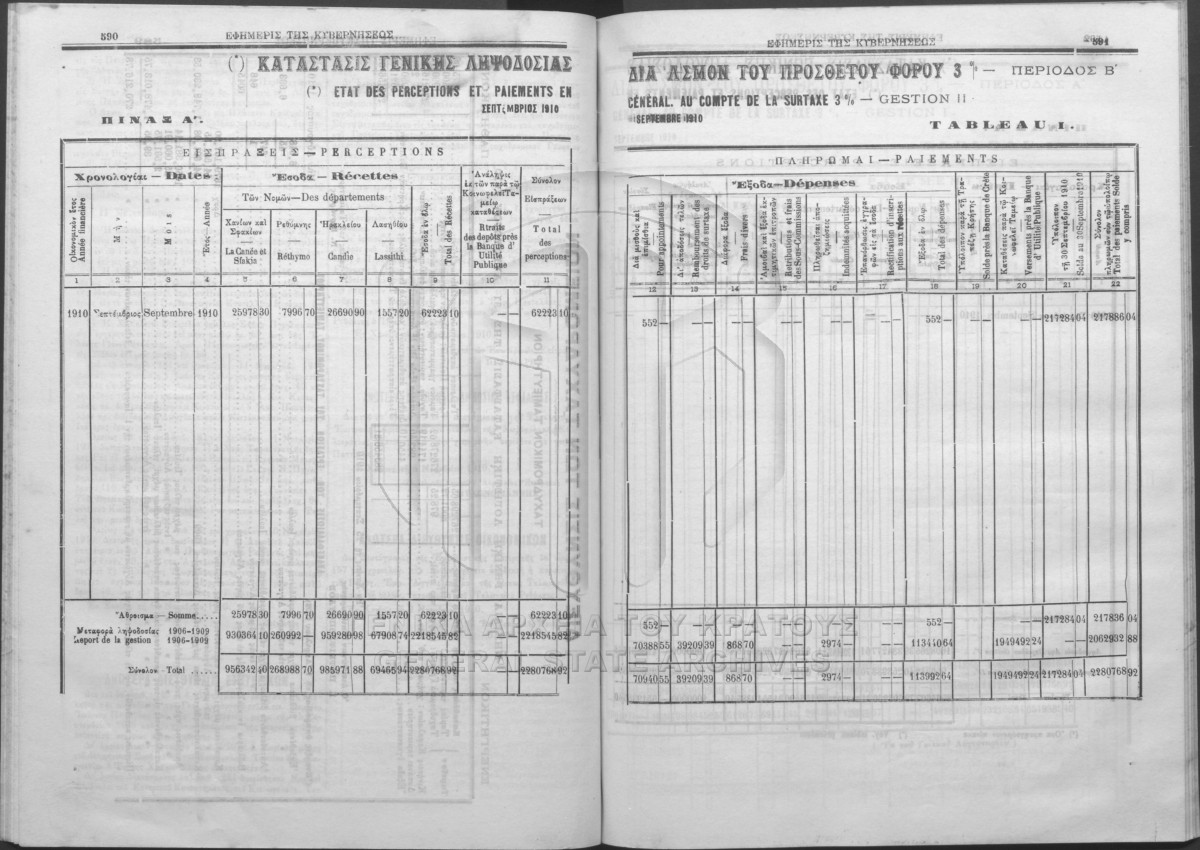 590
ΕΦΗΜΕΡΙΣ ΤΗΣ ΚΥΒΕΡΝΗΣΕΩΣ
(*) ΚΑΤΑΣΤΑΣΙΣ ΓΕΝΙΚΗΣ ΛΗΨΟΔΟΣΙΑΣ
(*) ETAT DES PERCEPTIONS ET PAIEMENTS EN
ΣΕΠΤΕΜΒΡΙΟΣ 1910
ΠΙΝΑΞ Α'.
ΕΙΣΠΡΑΞΕΙΣ—PERCEPTIONS
Χρονολογίαι — Dates
Ἔσοδα — Récettes
Τῶν Νομῶν—Des départements
Οἰκονομικὸν ἔτος
Année financière
Μήν
Mois
Ἔτος—Année
Χανίων καὶ Σφακίων
—
La Canée et Sfakia
Ρεθύμνης
—
Réthymo
Ἡρακλείου
—
Candie
Λασηθίου
—
Lassithi
Ἔσοδα ἐν ὅλῳ
Total des Récettes
Ἀνάληψις ἐκ τῶν παρὰ τῷ Κοινωφελεῖ Ταμείῳ καταθέσεων
Rtraits des depôts près la Banque d' Utilité Publique
Σύνολον Εἰσπράξεων
—
Total des perceptions
1 2 3 4 5 6 7 8 9 10 11
1910 Σεπτέμβριος Septembre 1910 25978 30 7996 70 26690 90 1557 20 62223 10 — — 62223 10
Ἄθροισμα — Somme..... 25978 30 7996 70 26690 90 1557 20 62223 10 — 62223 10
Μεταφορὰ ληψοδοσίας 1906-1909
Report de la gestion 1906-1909
930364 10 260992 — 959280 98 67908 74 2218545 82 — 2218545 82
Σύνολον Total ...... 956342 40 268988 70 985971 88 69465 94 2280768 92 — 2280768 92
ΕΦΗΜΕΡΙΣ ΤΗΣ ΚΥΒΕΡΝΗΣΕΩΣ
591
ΔΙΑ ΛΣΜΟΝ ΤΟΥ ΠΡΟΣΘΕΤΟΥ ΦΟΡΟΥ 3 % — ΠΕΡΙΟΔΟΣ Β'
GÉNÉRAL. AU COMPTE DE LA SURTAXE 3 % — GESTION II
SEPTEMBRE 1910
TABLEAU I.
ΠΛΗΡΩΜΑΙ—PAIEMENTS
Ἔξοδα—Dépenses
Διὰ μισθοὺς καὶ ἐπιμίσθια
Pour appointements
Remboursement des droits de surtaxe
Διάφορα ἔξοδα
Frais divers
Retributions et frais des Sous-Commissions
Indemnités acquittées
Rectification d'inscriptions aux récettes
Ἔξοδα ἐν ὅλῳ
Total des dépenses
Ὑπόλοιπον παρὰ τῇ Τραπέζῃ Κρήτης
Solde près la Banque de Crète
Καταθέσεις παρὰ τῷ Κοινωφελεῖ Ταμείῳ
Versements près la Banque d' Utilité Publique
Ὑπόλοιπον τῇ 30 Σεπτεμβρίου 1910
Solde au 30 Septembre 1910
Total des paiements Solde y compris
12 13 14 15 16 17 18 19 20 21 22
552 — — — — — — — — — — — 552 — — — 217284 04 217886 04
552 — — 552 — — 217284 04 217836 04
70388 55 39209 39 868 70 — — 2974 — — — 113440 64 1949492 24 — 2062932 88
70940 55 39209 39 868 70 — — 2974 — — — 113992 64 1949492 24 217284 04 2280768 92
ΓΕΝΙΚΑ ΑΡΧΕΙΑ ΤΟΥ ΚΡΑΤΟΥΣ
GENERAL STATE ARCHIVES